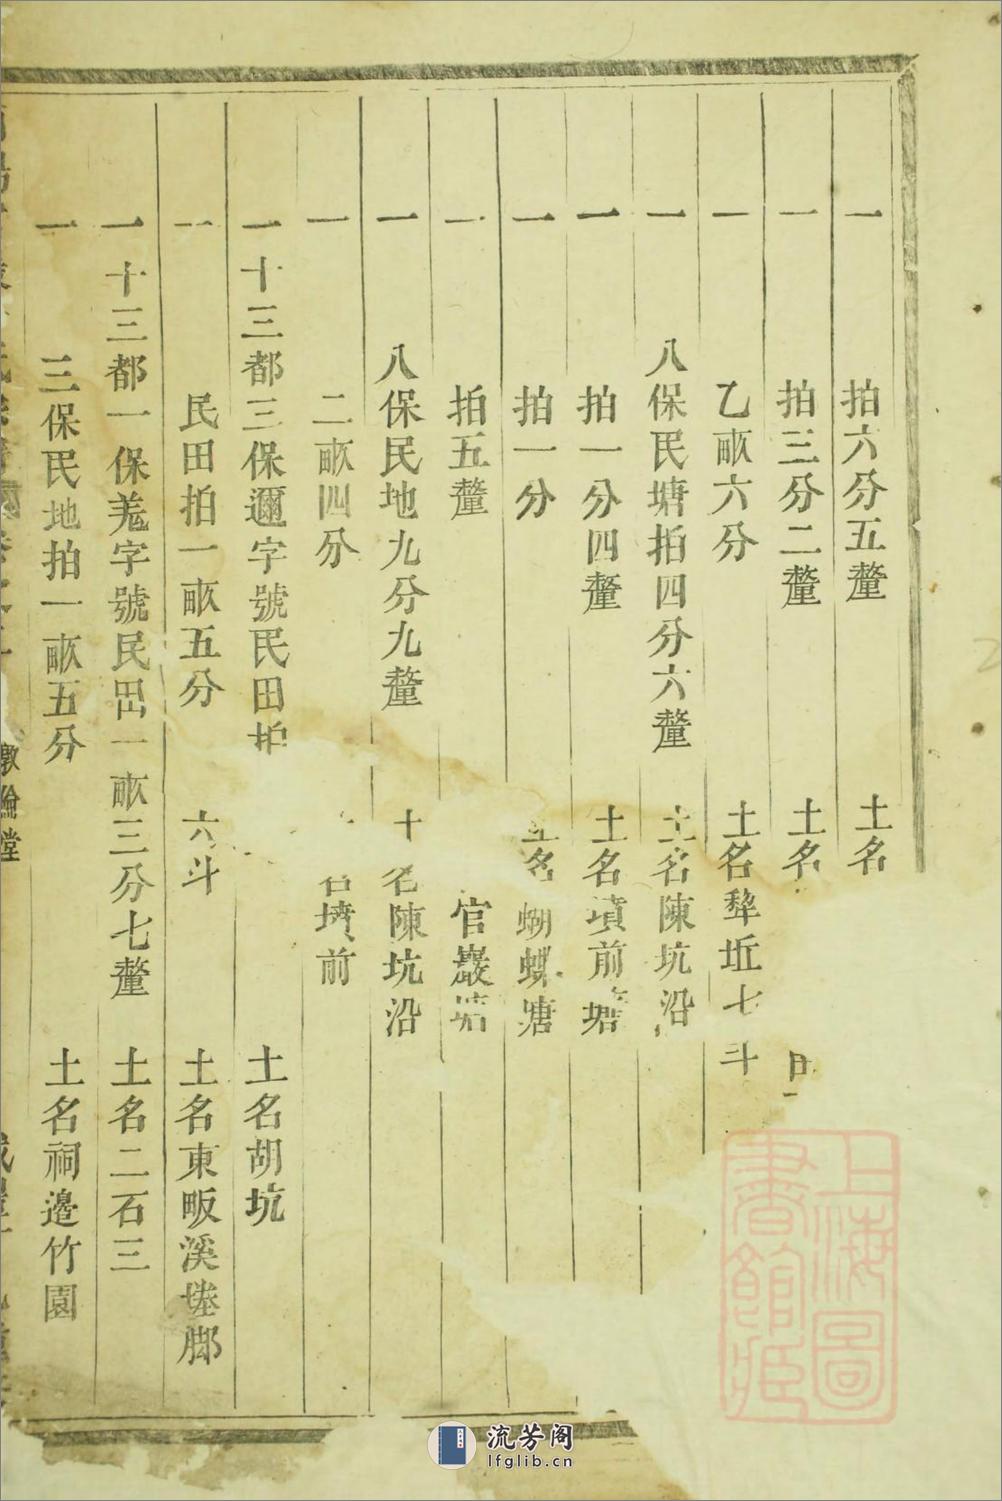 一 拍六分五釐 土名
一 拍三分二釐 土名
一 乙畝六分 土名犂坵七斗
一 八保民塘拍四分六釐 土名陳坑沿
一 拍一分四釐 土名墳前塘
一 拍一分 土名蝴蝶塘
一 拍五釐 官巖塘
一 八保民地九分九釐 名陳坑沿
一 二畝四分 名墳前
一 十三都三保邇字號民田拍 土名胡坑
一 民田拍一畝五分 六斗 土名東畈溪塂脚
一 十三都一保羗字號民田一畝三分七釐 土名二石三
一 三保民地拍一畝五分 土名祠邉竹園
敦倫堂
上海圖書館藏
流芳阁
lfglib.cn